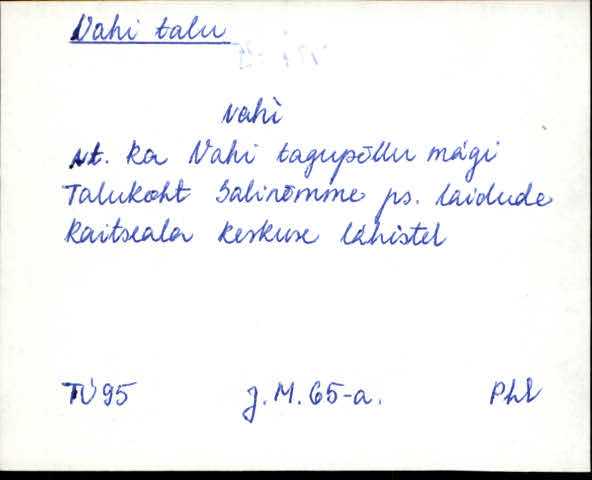 Vahi talu
vahì
vt. ka Vahi tagupõllu mägi
Talukoht Salinõmme ps. laidude
kaitseala keskuse lähistel
TÜ95 J.M. 65-a. Phl